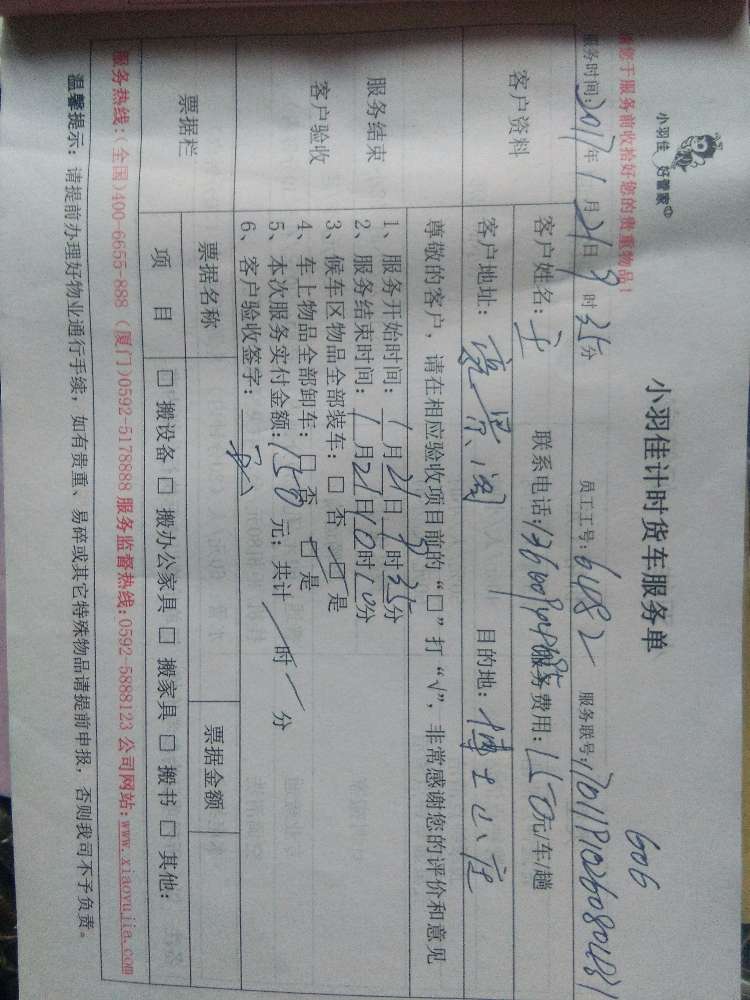 小羽佳 好管家
小羽佳计时货车服务单
606
您于服务前收拾好您的贵重物品!
服务时间:2017年1月21日9时35分 员工工号:6482 服务联号:
客户资料
客户姓名:王 联系电话: 服务费用:150元/车/趟
客户地址:豪景阁 目的地:博士山庄
尊敬的客户,请在相应验收项目前的“□”打“√”,非常感谢您的评价和意见
服务结束
客户验收
1、服务开始时间:1月21日9时35分
2、服务结束时间:1月21日10时10分
3、候车区物品全部装车:□ 否 ☑ 是
4、车上物品全部卸车:□ 否 ☑ 是
5、本次服务实付金额:150 元;共计 / 时 / 分
6、客户验收签字:
票据栏
票据名称 票据金额
项 目 □ 搬设备 □ 搬办公家具 □ 搬家具 □ 搬书 □ 其他:
服务热线:(全国)400-6655-888 (厦门)0592-5178888 服务监督热线:0592-5888123 公司网站:www.xiaoyujia.com
温馨提示:请提前办理好物业通行手续,如有贵重、易碎或其它特殊物品请提前申报,否则我司不予负责。